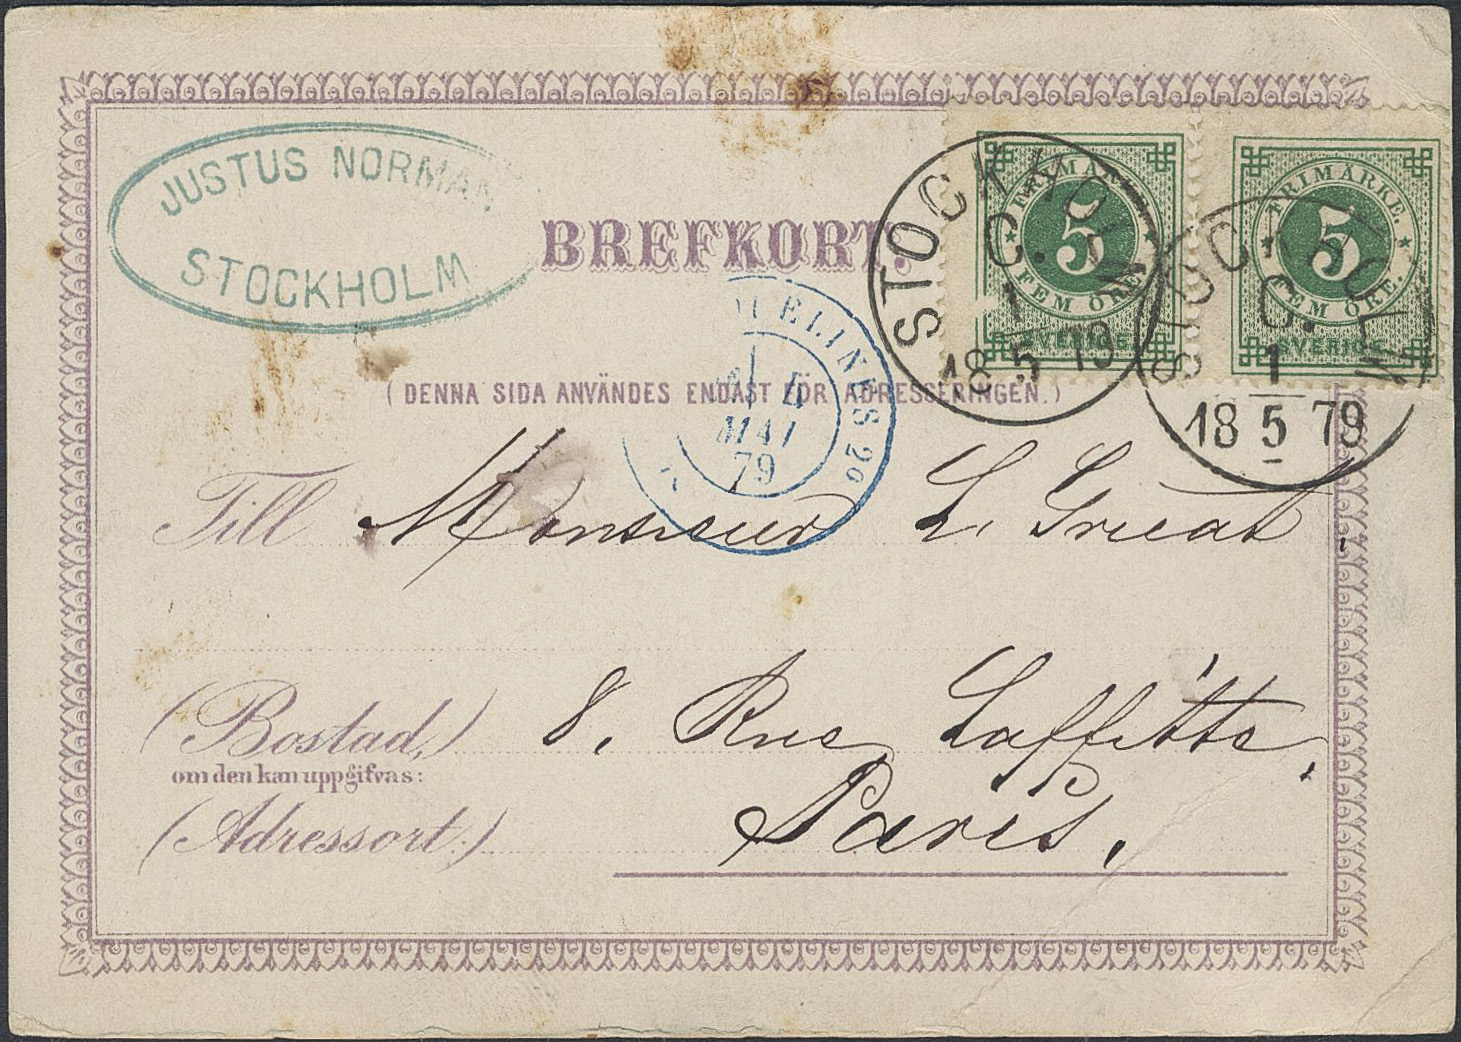 JUSTUS NORMAN
STOCKHOLM
BREFKORT.
FRIMÄRKE
5
FEM ÖRE
SVERIGE
FRIMÄRKE
5
FEM ÖRE.
SVERIGE
STOCKHOLM
C.
1
18 5 79
STOCKHOLM
C.
1
18 5 79
(DENNA SIDA ANVÄNDES ENDAST FÖR ADRESSERINGEN.)
QUELINES 2º
MAI
79
Till Monsieur L.
(Bostad,) 8, Rue Laffitte,
om den kan uppgifvas:
(Adressort.) Paris,